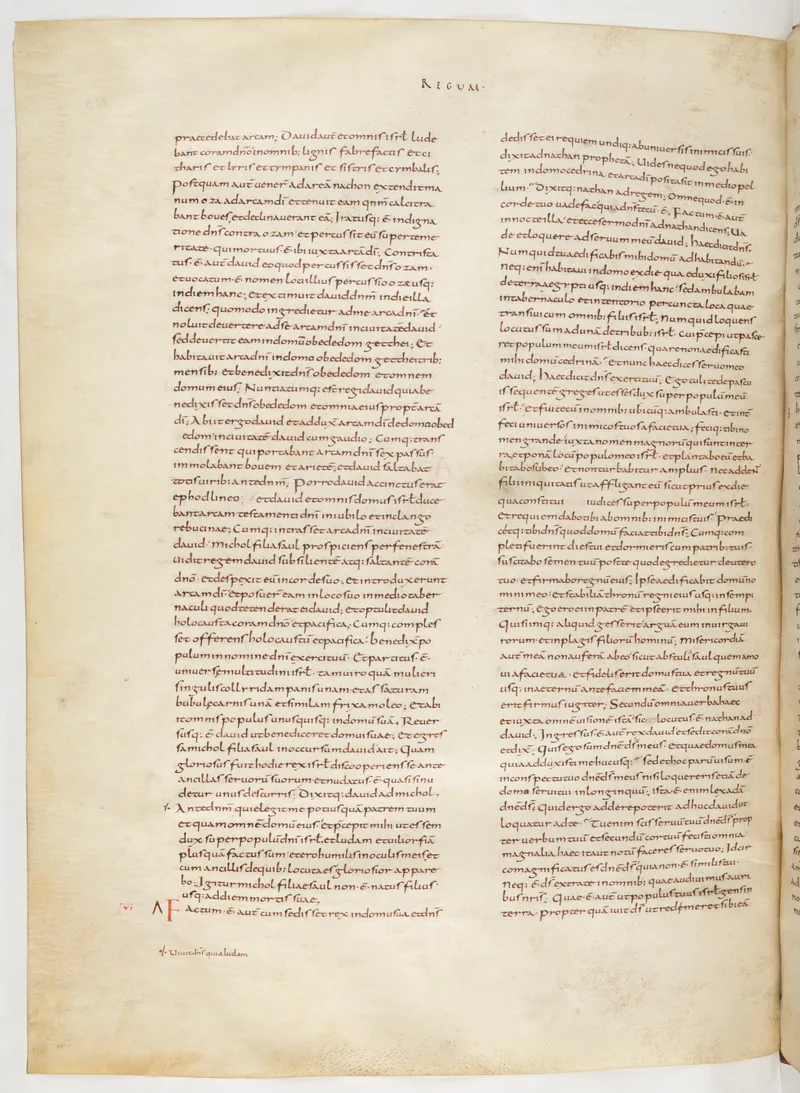 REGUM·
praecedebat arcam; Dauid aut̄ et omnis isrl̄ lude
bant coram dn̄o in omnib; lignis fabrefactis et ci
tharis et lyris et tympanis et sistris et cymbalis;
Postquam aut̄ uener̄ ad areā nachon extendit ma
num oza ad arcam dī et tenuit eam qn̄m calcitra
bant boues, et declinauerant eā; Iratusq; ÷ indigna
tione dn̄s contra ozam et percussit eū super teme
ritate· qui mortuus ÷ ibi iuxta arcā dī; Contrista
tus ÷ aut̄ dauid eo quod percussisset dn̄s ozam·
et uocatum ÷ nomen loci illius percussio ozae usq;
in diem hanc; Et extimuit dauid dn̄m in die illa
dicens; quomodo ingredietur ad me arca dn̄i· et
noluit deuertere ad se arcam dn̄i in ciuitatē dauid·
sed deuertit eam in domū obededom getthei; Et
habitauit arca dn̄i in domo obededom getthei trib;
mensib; et benedixit dn̄s obededom et omnem
domum eius; Nuntiatumq; est regi dauid quia be
nedixisset dn̄s obededom et omnia eius propt̄ arcā
dī; Abiit ergo dauid et adduxit arcam dī de domo obed
edom in ciuitatē dauid cum gaudio; Cumq; trans
cendissent qui portabant arcam dn̄i sex passus
immolabant bouem et arietē; et dauid saltabat
totis uirib; ante dn̄m; Porro dauid accinctus erat
ephod lineo et dauid et omnis domus isrl̄ duce
bant arcam testamenti dn̄i in iubilo et in clango
re bucinae; Cumq; intrasset arca dn̄i in ciuitatē
dauid· michol filia saul prospiciens per fenestrā
uidit regem dauid subsilientē atq; saltantē corā
dn̄o· et despexit eū in corde suo. Et introduxerunt
arcam dī et posuer̄ eam in loco suo in medio taber
naculi quod tetenderat ei dauid; et optulit dauid
holocausta coram dn̄o et pacifica; Cumq; comples
set offerens holocaustū et pacifica· benedix̄ po
pulum in nomine dn̄i exercituū· Et partitus ÷
uniuersę multitudini isrl̄· tam uiro quā mulieri
singulis collyridam panis unam· et assaturam
bubulę carnis unā et similam frixam oleo; et abi
it omnis populus unusquisq; in domū suā, Reuer
susq; ÷ dauid ut benediceret domui suae, et egres
sa michol filia saul in occursum dauid ait; Quam
gloriosus fuit hodie rex isrl̄ discooperiens se ante
ancillas seruorū suorum et nudatus ÷ quasi si nu
detur unus de scurris. Dixitq; dauid ad michol.
Ante dn̄m qui elegit me potius quā patrem tuum
et quam omnē domū eius· et p̄cepit mihi ut essem
dux super populū dn̄i isrl̄, et ludam et uilior fiā
plus quā factus sum; et ero humilis in oculis meis et
cum ancillis de quib; locuta es gloriosior appare
bo. Igitur michol filiae saul non ÷ natus filius
usq; ad diem mortis suae;
VI FActum ÷ aut̄ cum sedisset rex in domo sua et dn̄s
Viuit dn̄s quia ludam
dedisset ei requiem undiq; ab uniuersis inimicis suis·
dixit ad nathan prophetā· Uides ne quod ego habi
tem in domo cedrina et arca dī posita sit in medio pel
lium· Dixitq; nathan ad regem; Omne quod ÷ in
corde tuo uade fac quia dn̄s tecū ÷. Factum ÷ aut̄
in nocte illa· et ecce sermo dn̄i ad nathan dicens; Ua
de et loquere ad seruum meū dauid; haec dicit dn̄s.
Numquid tu aedificabis mihi domū ad habitandū·
neq; enī habitaui in domo ex die qua eduxi filios isrl̄
de terra aegypti usq; in diem hanc· sed ambulabam
in tabernaculo et in tentorio per cuncta loca quae
transiui cum omnib; filiis isrl̄; Numquid loquens
locutus sum ad unā de tribub; isrl̄· cui p̄cepi ut pasce
ret populum meū isrl̄ dicens quare non aedificastis
mihi domū cedrinā· Et nunc haec dices seruo meo
dauid; haec dicit dn̄s exercituū; Ego tuli te de pascu
is sequentē greges ut esses dux super populū meū
isrl̄· et fui tecū in omnib; ubicūq; ambulasti· et int̄
feci uniuersos inimicos tuos a facie tua; fecīq; tibi no
men grande iuxta nomen magnorū qui sunt in ter
ra, et ponā locū populo meo isrl̄· et plantabo eū et ha
bitabit sub eo· et non turbabitur amplius· nec addent
filii iniquitatis ut affligant eū sicut prius ex die
qua constitui iudices super populū meum isrl̄·
Et requiem dabo tibi ab omnib; inimicis tuis· Praedi
citq; tibi dn̄s quod domū faciat tibi dn̄s; Cumq; com
pleti fuerint dies tui et dormieris cum patrib; tuis·
suscitabo semen tuū post te quod egredietur de utero
tuo· et firmabo regnū eius; Ipse aedificabit domū no
mini meo· et stabiliā thronū regni eius usq; in sempi
ternū, Ego ero ei in patrē et ipse erit mihi in filium.
Qui si iniq; aliquid gesserit arguā eum in uirga ui
rorum et in plagis filiorū hominū; Misericordiā
aut̄ meā non auferā ab eo sicut abstuli saul quem amo
ui a facie tua· et fidelis erit domus tua et regnū tuū
usq; in aeternū ante faciem meā· et thronus tuus
erit firmus iugiter; Secundū omnia uerba haec
et iuxta omnē uisionē istā· sic locutus ÷ nathan ad
dauid, Ingressus ÷ aut̄ rex dauid et sedit corā dn̄o
et dix̄; Quis ego sum dn̄e ds̄ meus· et quae domus mea
quia adduxisti me hucusq; sed et hoc parū uisum ÷
in conspectu tuo dn̄e ds̄ meus nisi loquereris etiā de
domo serui tui in longinquū; ista ÷ enim lex adā
dn̄e ds̄; Quid ergo addere poterit adhuc dauid ut
loquatur ad te· Tu enim scis seruū tuū dn̄e ds̄ prop
ter uerbum tuū et secundū cor tuū fecisti omnia
magnalia haec ita ut notū faceres seruo tuo; Idcir
co magnificatus es dn̄e ds̄ quia non ÷ similis tui·
Neq; ÷ ds̄ extra te in omnib; quae audiuimus auri
bus nr̄is; Quae ÷ aut̄ ut populus tuus isrl̄ gens in
terra· propter quā iuit ds̄ ut redimeret sibi eā